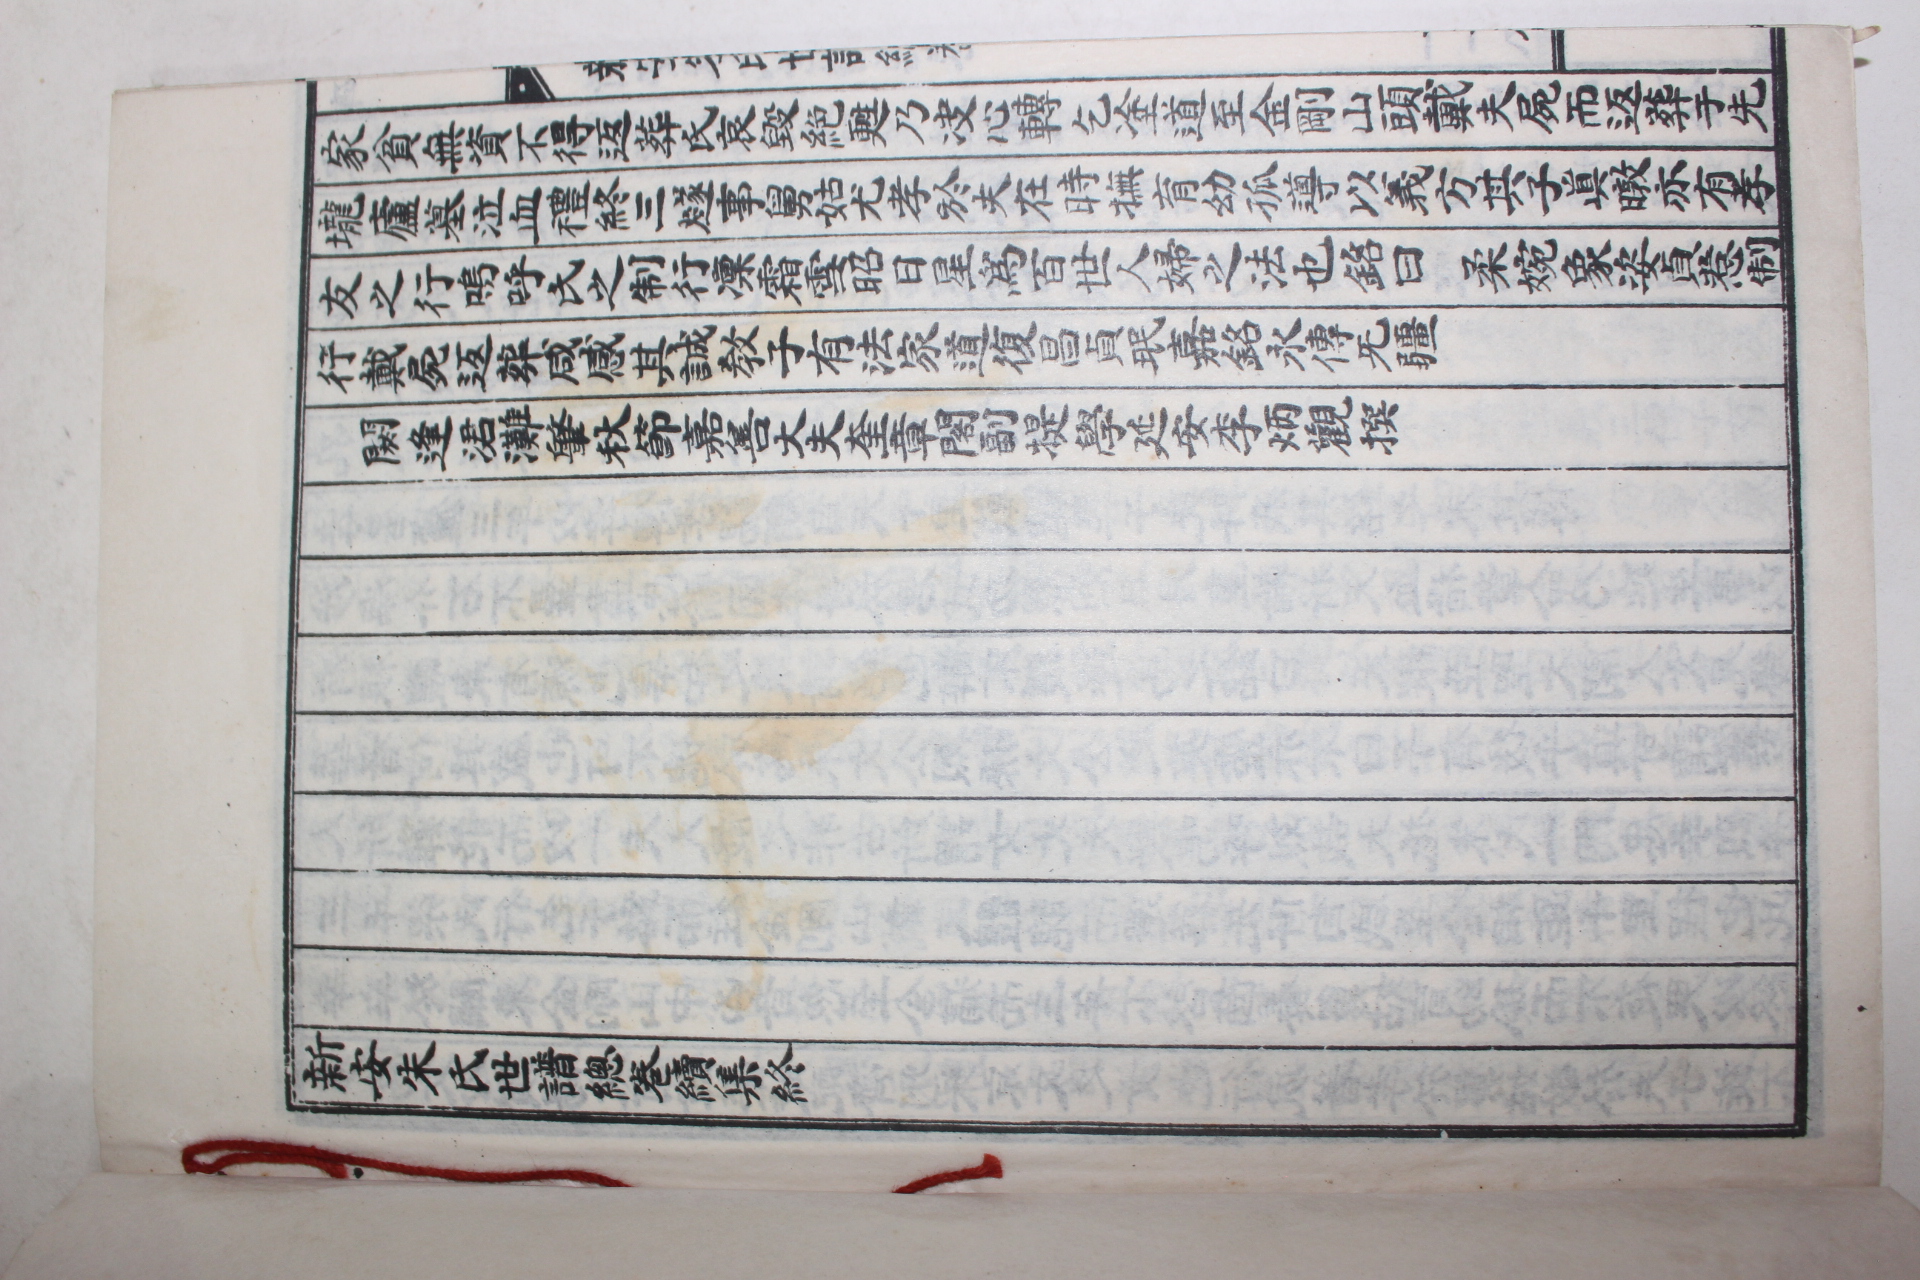 家貧無資不得返葬氏哀毀絶甦乃決心轉乞途道至金剛山頭戴夫屍而返葬于先
壠廬墓泣血禮終三燧事舅姑尤孝於夫在時撫育幼孤導以義方其子眞暾亦有孝
友之行嗚呼氏之制行凜霜雪昭日星爲百世人婦之法也銘曰 柔婉象姿貞慤制
行戴屍返葬咸感其誠敎子有法家道復昌貞珉嘉銘永傳无疆
閼逢涒灘肇秋節嘉善大夫奎章閣副提學延安李炳觀撰
新安朱氏世譜總卷續集終